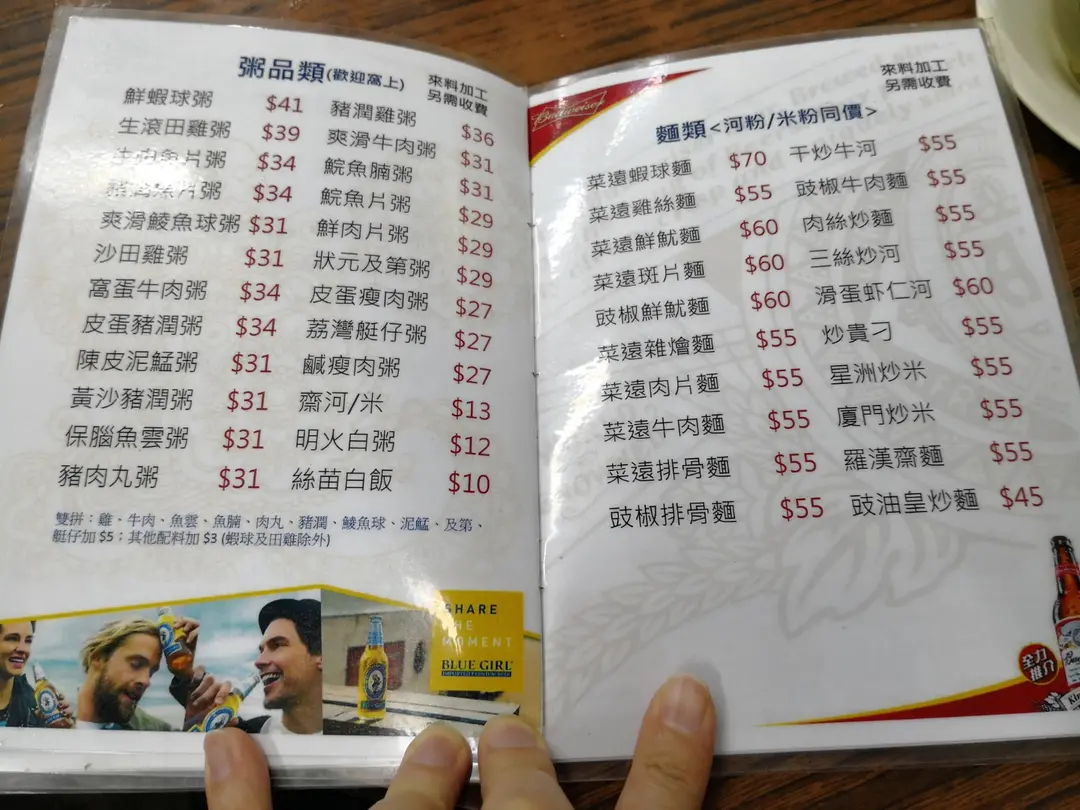 粥品類(歡迎窩上) 來料加工
另需收費
鮮蝦球粥 $41 豬潤雞粥 $36
生滾田雞粥 $39 爽滑牛肉粥 $31
魚片粥 $34 鯇魚腩粥 $31
魚片粥 $34 鯇魚片粥 $29
爽滑鯪魚球粥 $31 鮮肉片粥 $29
沙田雞粥 $31 狀元及第粥 $29
窩蛋牛肉粥 $34 皮蛋瘦肉粥 $27
皮蛋豬潤粥 $34 荔灣艇仔粥 $27
陳皮泥鯭粥 $31 鹹瘦肉粥 $27
黃沙豬潤粥 $31 齋河/米 $13
保腦魚雲粥 $31 明火白粥 $12
豬肉丸粥 $31 絲苗白飯 $10
雙拼：雞、牛肉、魚雲、魚腩、肉丸、豬潤、鯪魚球、泥鯭、及第、
艇仔加 $5；其他配料加 $3 (蝦球及田雞除外)
SHARE
THE
MOMENT
BLUE GIRL
Budweiser
來料加工
另需收費
麵類<河粉/米粉同價>
菜遠蝦球麵 $70 干炒牛河 $55
菜遠雞絲麵 $55 豉椒牛肉麵 $55
菜遠鮮魷麵 $60 肉絲炒麵 $55
菜遠斑片麵 $60 三絲炒河 $55
豉椒鮮魷麵 $60 滑蛋虾仁河 $60
菜遠雜燴麵 $55 炒貴刁 $55
菜遠肉片麵 $55 星洲炒米 $55
菜遠牛肉麵 $55 廈門炒米 $55
菜遠排骨麵 $55 羅漢齋麵 $55
豉椒排骨麵 $55 豉油皇炒麵 $45
全力
推介